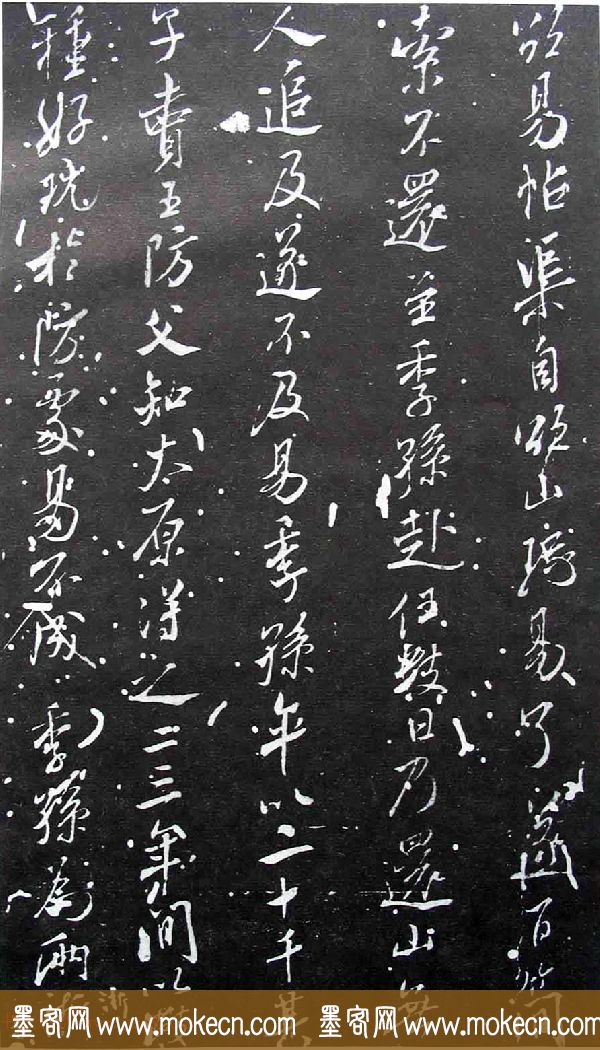 易帖渠自問山硯易了遂
索不還並季孫赴任數日乃還山
人追及遂不及易季孫卒以二十千
子賣王防父知太原得之二三年間
種好玩於防處易不成季孫為兩
墨客网 www.mokecn.com 墨客网 www.mokecn.com